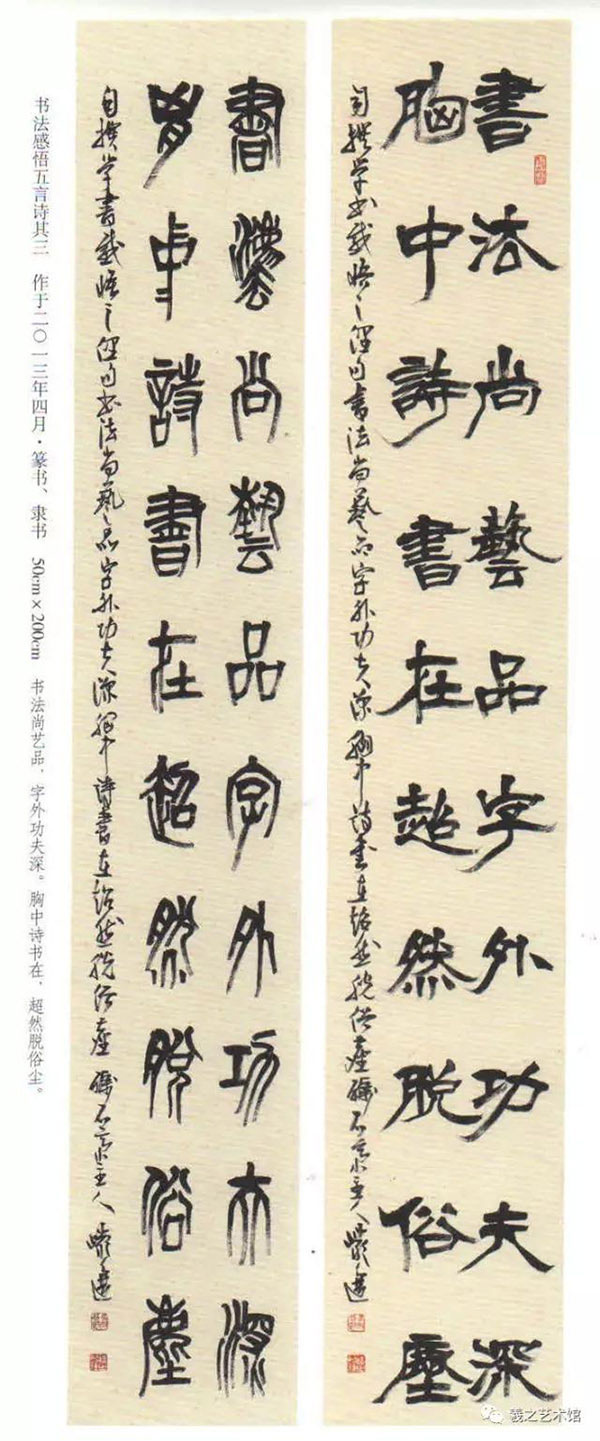 書法尚藝品字外功夫深
胸中詩書在超然脫俗塵
自撰学书感悟之句書法尚藝品字外功夫深胸中詩書在超然脱俗塵 石主人
書灋尚藝品字外功夫深
胸中詩書在超然脫俗塵
自撰学書感悟之句书法尚藝品字外功夫深胸中詩書在超然脱俗塵 石主人
书法感悟五言诗其三 作于二〇一三年四月·篆书、隶书 50cm×200cm 书法尚艺品，字外功夫深。胸中诗书在，超然脱俗尘。
羲之艺术馆